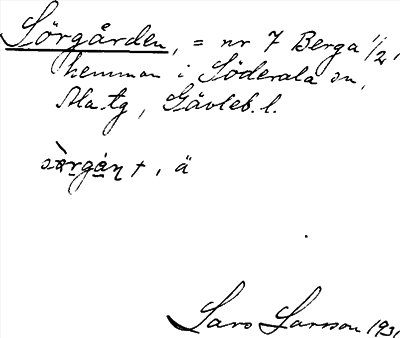 Sörgården, = nr 7 Berga 1/2,
hemman i Söderala sn,
Ala tg, Gävleb. l.
sörgán +, ä
Lars Larsson 1931